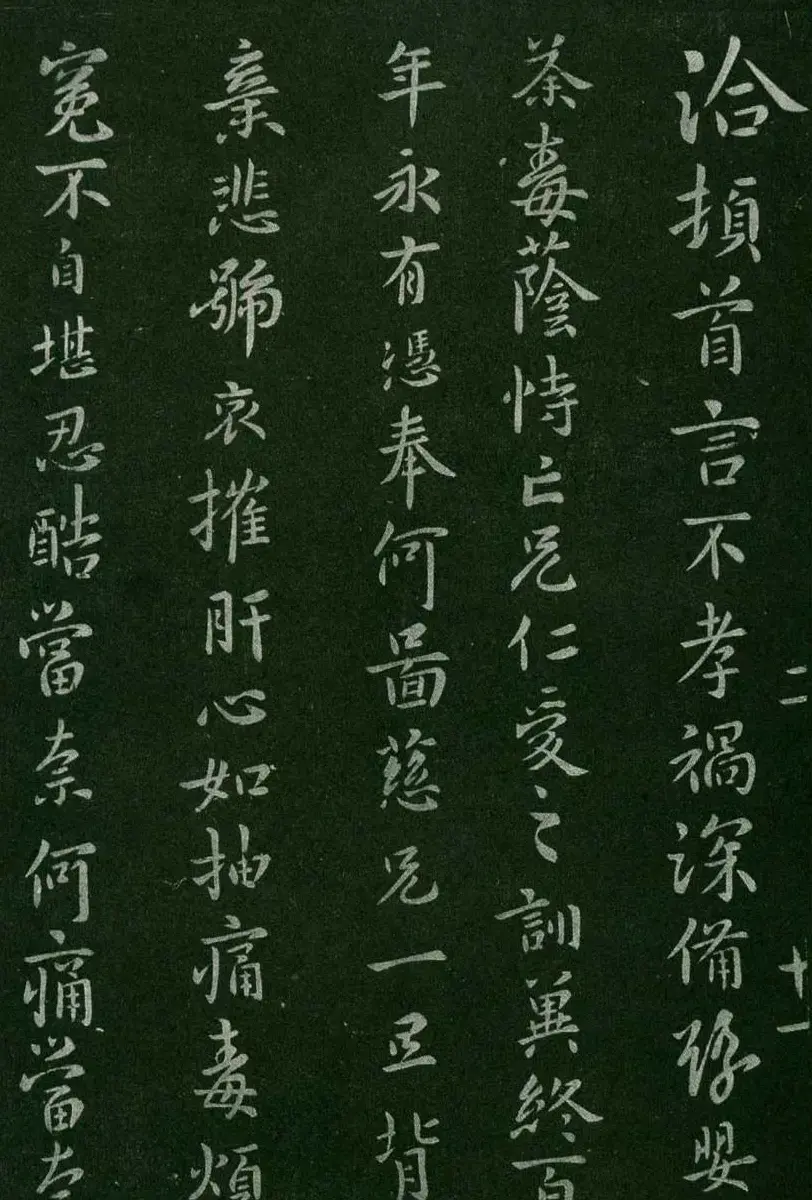 洽頓首言不孝禍深備孫嬰
荼毒蔭恃亡兄仁愛之訓冀終百
年永有憑奉何圖慈兄一旦背
棄悲號哀摧肝心如抽痛毒煩
冤不自堪忍酷當奈何痛當奈
二
十一